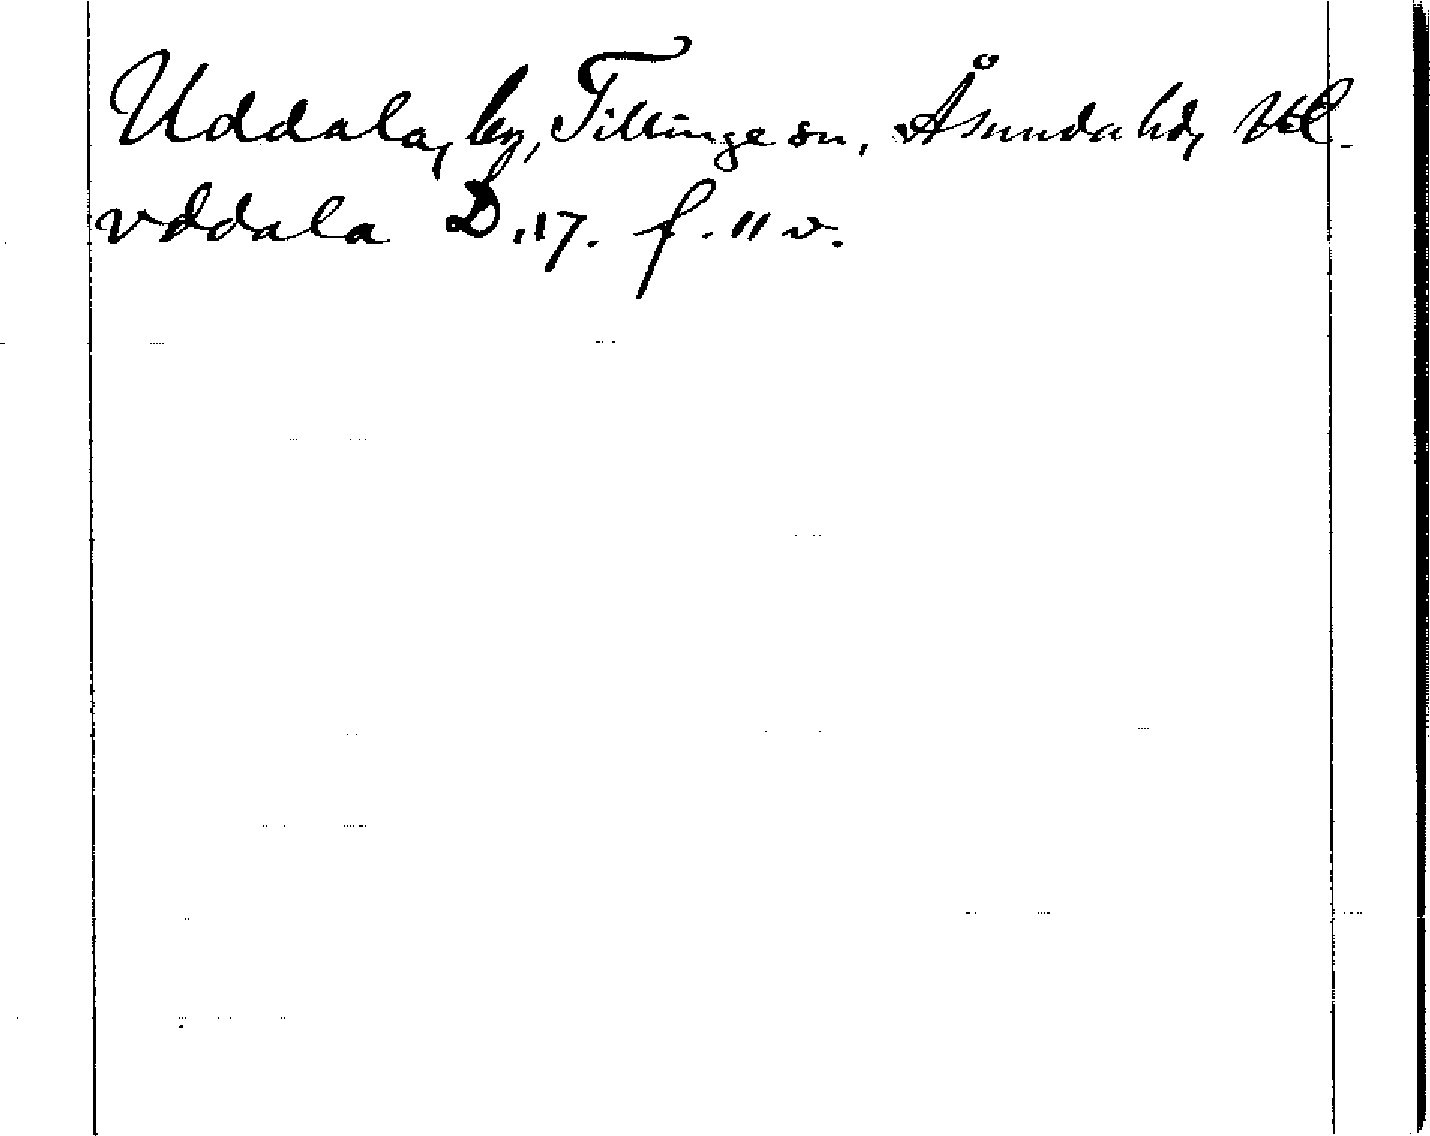 Uddala, by, Tillinge sn, Åsunda hd, Upl.
vddala D. 17. f. 11 v.